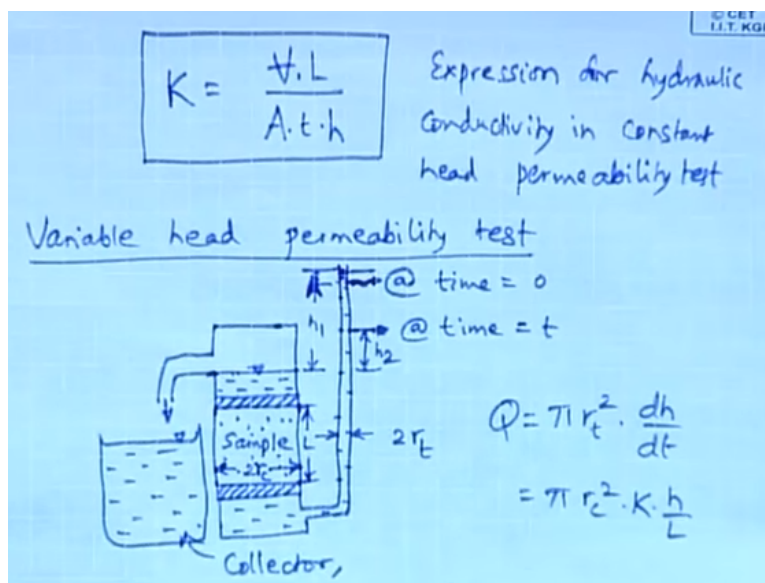 © CET
I.I.T. KGP
K = V.L / A.t.h
Expression for hydraulic
conductivity in constant
head permeability test
Variable head permeability test
@ time = 0
h1
@ time = t
h2
Sample
L
2rt
2rc
Q = π rt². dh/dt
= π rc². K. h/L
Collector,